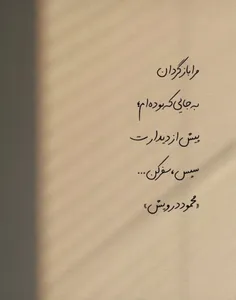 مرا بازگردان
به جایی که بوده‌ام،
پیش از دیدارت
سپس، سفر کن...
«محمود درویش»